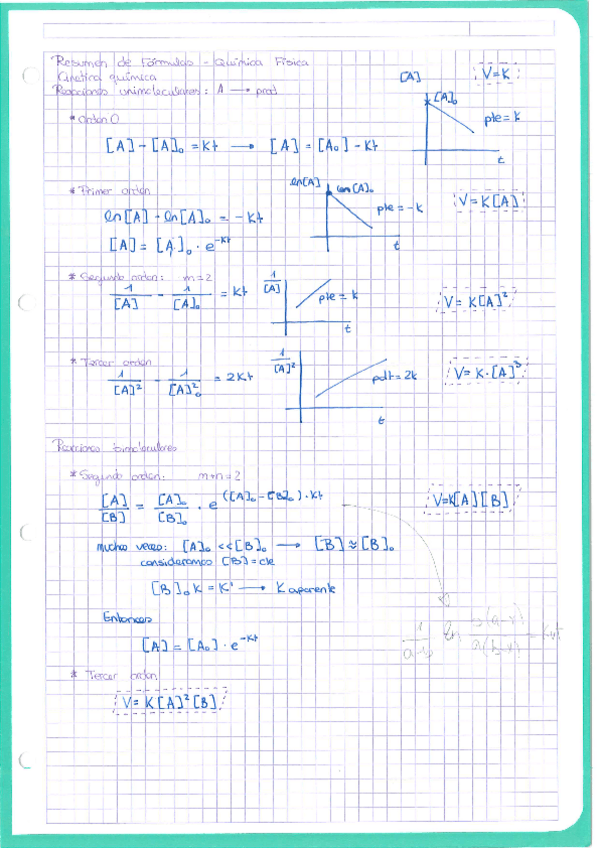 Resumen de Fórmulas - Química Física
Cinética química
Reacciones unimoleculares: A → prod
[A]
V=K
* Orden 0
[A]₀
pte = k
t
[A] - [A]₀ = Kt → [A] = [A₀] - Kt
* Primer orden
ln[A]
ln[A]₀
pte = -k
t
V = K[A]
ln[A] - ln[A]₀ = -Kt
[A] = [A]₀ · e^-Kt
* Segundo orden: m=2
1/[A] - 1/[A]₀ = Kt
1/[A]
pte = k
t
V = K[A]²
* Tercer orden
1/[A]² - 1/[A]₀² = 2Kt
1/[A]²
pdt = 2k
t
V = K·[A]³
Reacciones bimoleculares
* Segundo orden: m+n=2
[A]/[B] = [A]₀/[B]₀ · e^([A]₀-[B]₀)·Kt
V=K[A][B]
muchas veces: [A]₀ << [B]₀ → [B] ≈ [B]₀
consideramos [B] = cte
[B]₀ K = K' → K aparente
Entonces
[A] = [A₀] · e^-Kt
* Tercer orden
V = K[A]²[B]